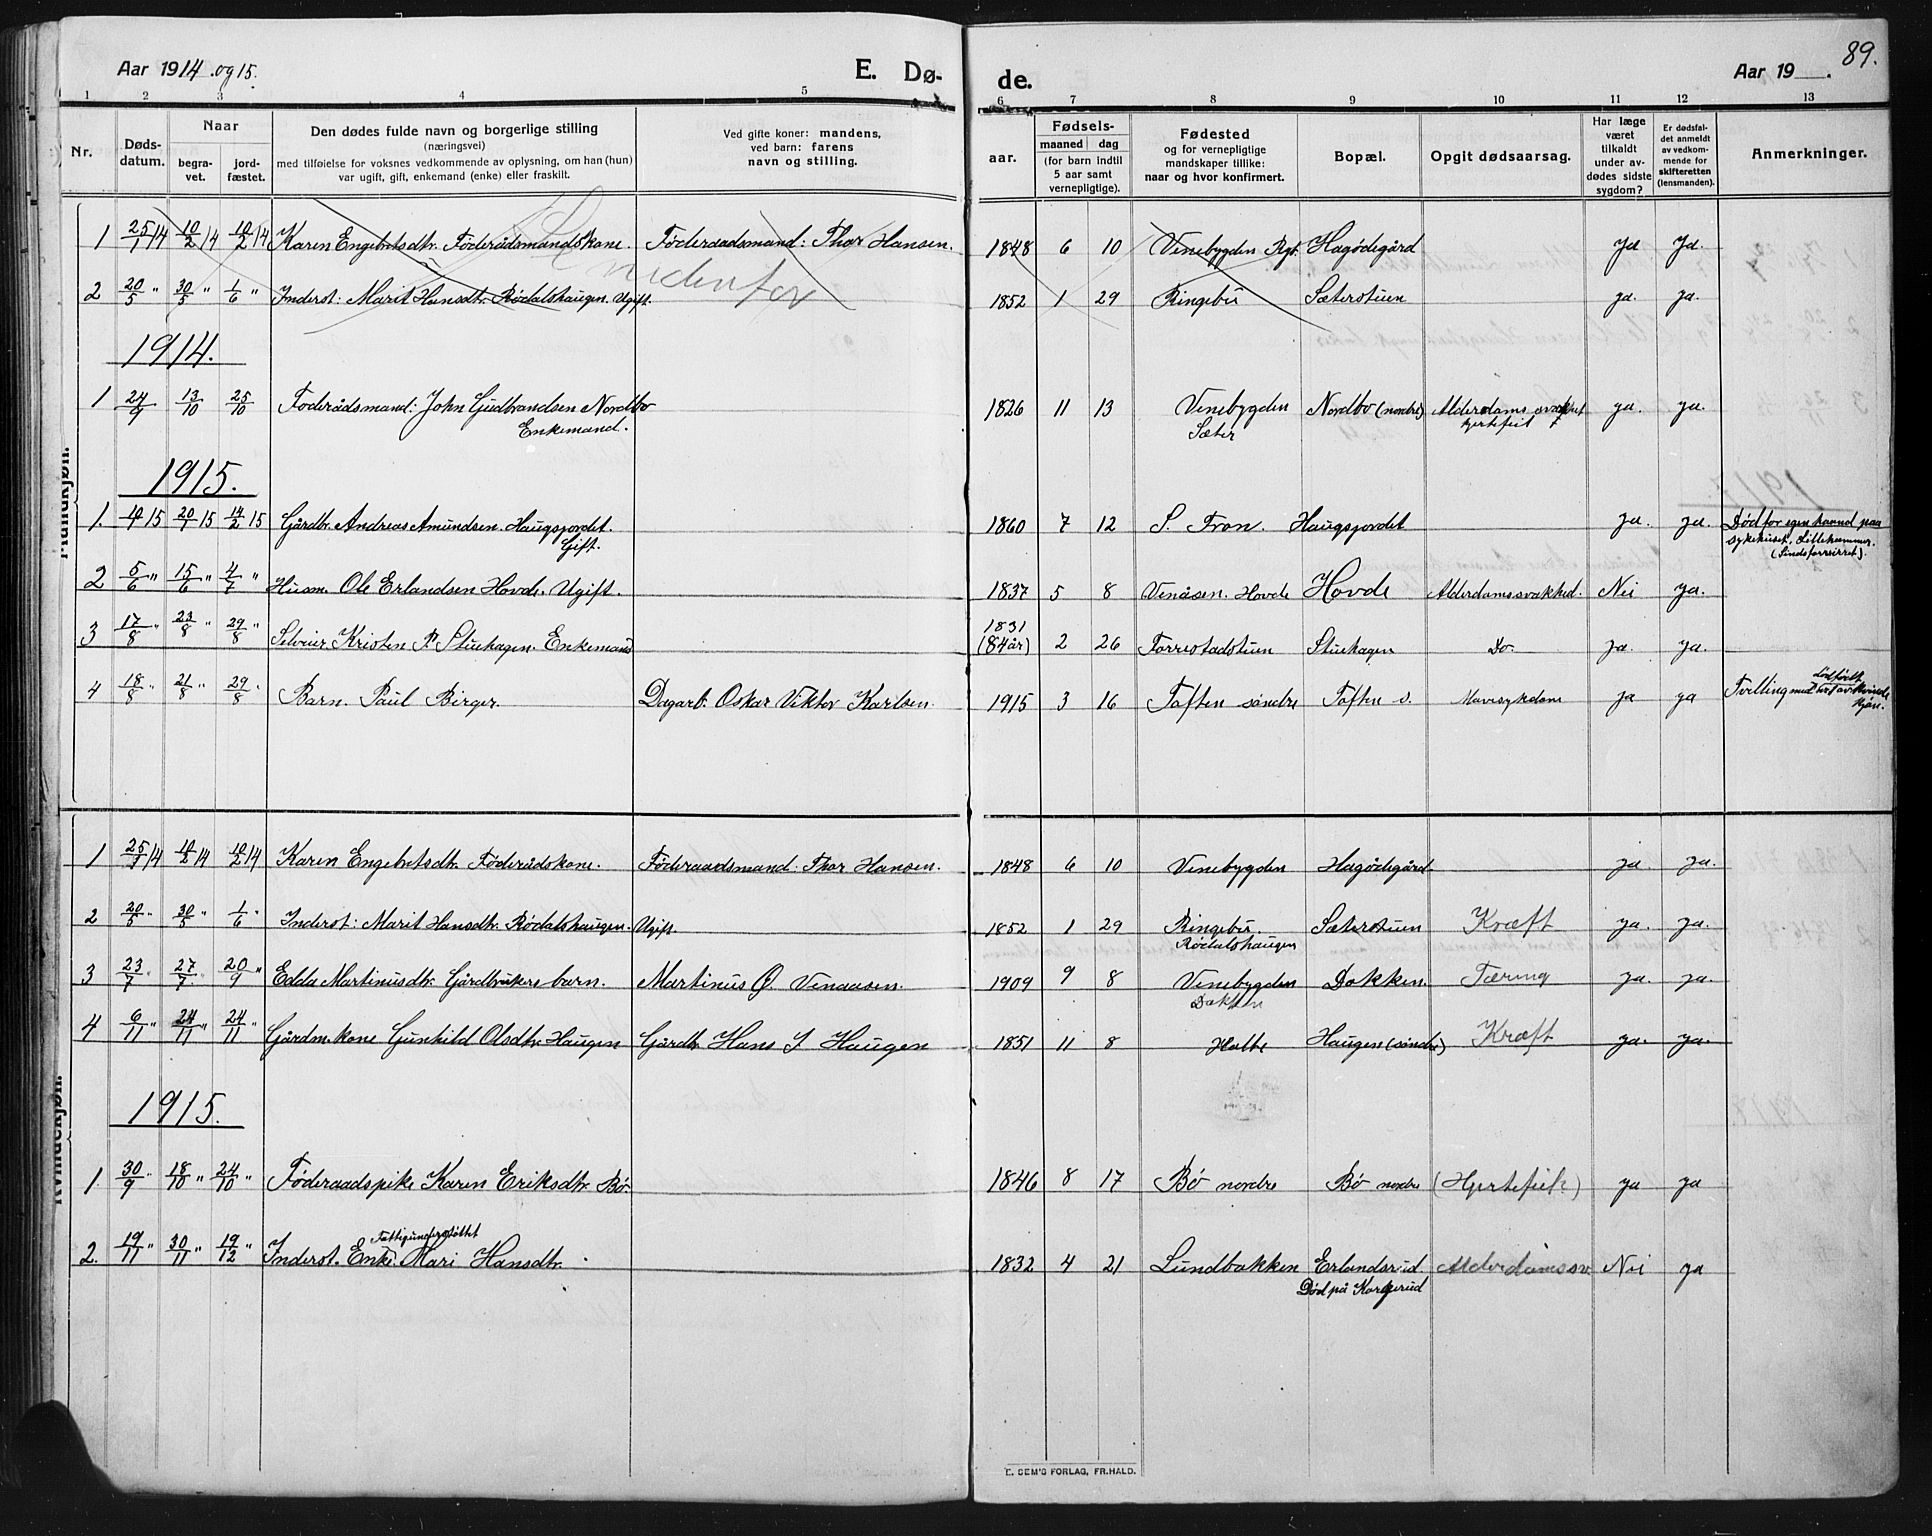 Aar 1914 og 15.
E. Dø-
de.
Aar 19 .
89.
1 2 3 4 5 6 7 8 9 10 11 12 13
Nr.
Døds-
datum.
Naar
begra-
vet.
jord-
fæstet.
Den dødes fulde navn og borgerlige stilling
(næringsvei)
med tilføielse for voksnes vedkommende av oplysning, om han (hun)
var ugift, gift, enkemand (enke) eller fraskilt.
Ved gifte koner: mandens,
ved barn: farens
navn og stilling.
aar.
Fødsels-
maaned dag
(for barn indtil
5 aar samt
vernepligtige).
Fødested
og for vernepligtige
mandskaper tillike:
naar og hvor konfirmert.
Bopæl.
Opgit dødsaarsag.
Har læge
været
tilkaldt
under av-
dødes sidste
sygdom?
Er dødsfal-
det anmeldt
av vedkom-
mende for
skifteretten
(lensmanden).
Anmerkninger.
Mandkjøn.
1 25/1 14 10/2 14 10/2 14 Karen Engebretsdtr. Føderådsmandskone. Føderaadsmand: Thor Hansen. 1848 6 10 Venebygden Rgb. Hagødegård Ja Ja.
2 20/5 " 30/5 " 1/6 " Inderst: Marit Hansdtr. Rødalshaugen. Ugift. 1852 1 29 Ringebu Sæterstuen ja. ja.
nedenfor
1914.
1 24/9 13/10 25/10 Føderådsmand: John Gudbrandsen Nordbo 1826 11 13 Venebygden Nordbo (nordre) Alderdoms svakhet ja. ja.
Enkemand. Sæter hjertefeil
1915.
1. 10/1 15 20/1 15 14/2 15 Gårdbr. Andreas Amundsen. Haugsjordet. 1860 7 12 S. Fron. Haugsjordet ja. ja. Død for egen haand paa
Gift. sykehuset, Lillehammer.
(Sindsforvirret).
2 5/6 " 15/6 " 4/7 " Husm. Ole Erlandsen Hovde. Ugift. 1837 5 8 Venåsen. Hovde Hovde Alderdomssvakhed. Nei ja.
3 17/8 " 23/8 " 29/8 " Selveier Kristen P. Stuehagen. Enkemand 1831
(84 år) 2 26 Forrestadstuen Stuehagen Do. ja. ja.
4 18/8 " 21/8 " 29/8 " Barn. Paul Birger. Dagarb. Oskar Viktor Karlsen. 1915 3 16 Toften søndre Toften s. Mavesykdom ja ja Tvilling med
Kvindekjøn.
1 25/1 14 10/2 14 10/2 14 Karen Engebretsdtr. Føderådskone. Føderaadsmand: Thor Hansen. 1848 6 10 Venebygden Hagødegård ja. ja.
2 20/5 " 30/5 " 1/6 " Inderst: Marit Hansdtr. Rødalshaugen. Ugift 1852 1 29 Ringebu, Sæterstuen Kræft ja. ja.
Rødalshaugen
3 23/7 " 27/7 " 20/9 " Edda Martinusdtr. Gårdbrukers barn. Martinus Ø. Venaasen. 1909 9 8 Venebygden Dokken. Tæring ja. ja.
Dokken
4 6/11 " 24/11 " 24/11 " Gårdm.kone Gunhild Olsdtr. Haugen Gårdbr. Hans J Haugen 1851 11 8 Holte Haugen (søndre) Kræft ja. ja.
1915.
1. 30/9 " 18/10 " 24/10 " Føderaadspike Karen Eriksdtr. Bø. 1846 8 17 Bø nordre Bø nordre (Hjertefeil) ja ja
Fattigunderstøttet
2. 19/11 " 30/11 " 19/12 " Inderst. Enke. Mari Hansdtr. 1832 4 21 Lundbakken Erlandsrud Alderdomssv. Nei ja
Død på Korperud
E. SEM'S FORLAG, FR.HALD.